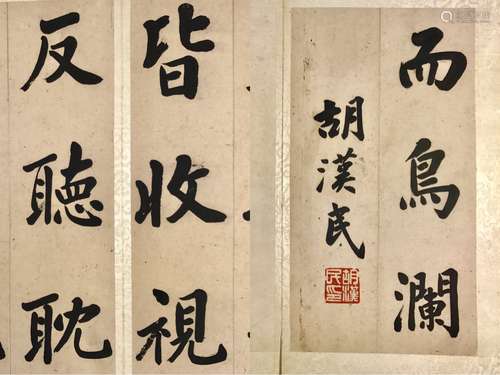 皆收視
反聽耽
而鳥瀾
胡漢民
胡漢民印